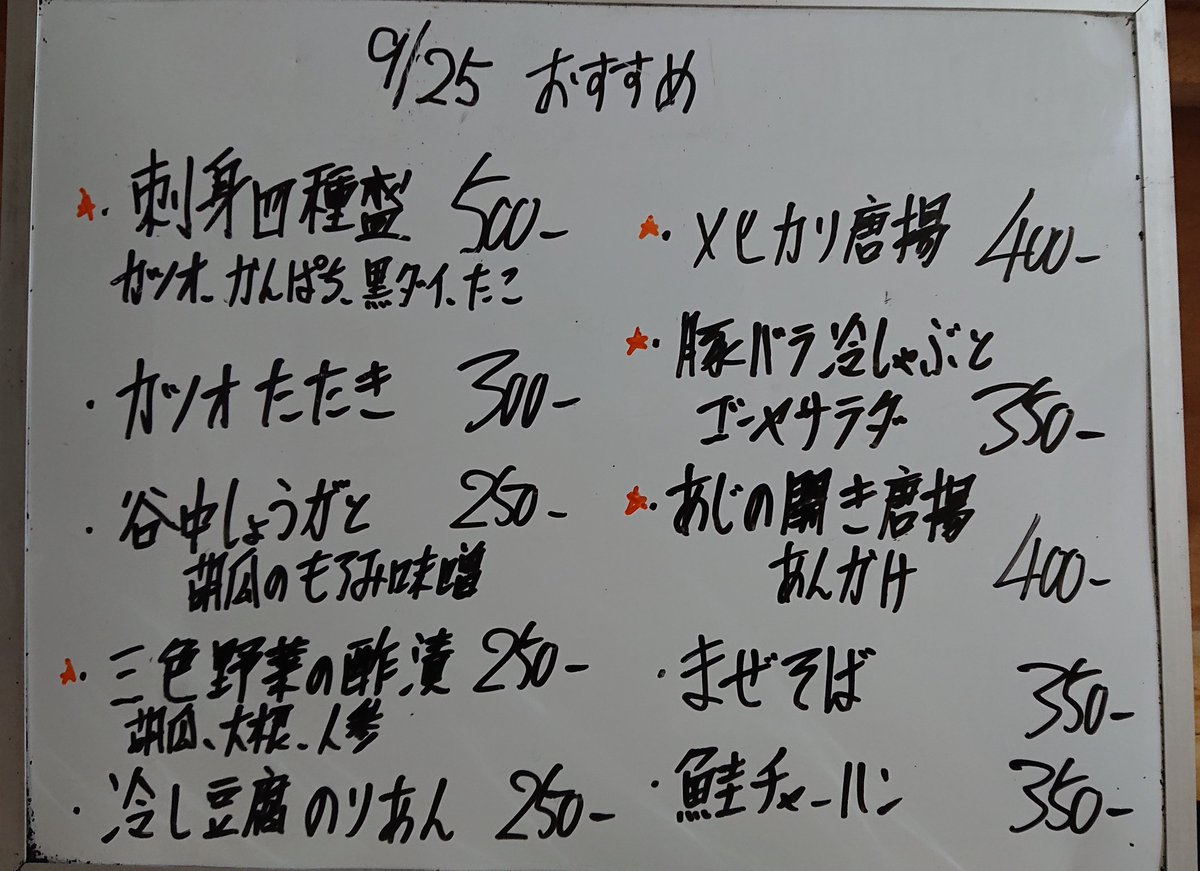 9/25 おすすめ
・刺身四種盛 500-
カツオ、かんぱち、黒ダイ、たこ
・カツオたたき 300-
・谷中しょうがと 250-
胡瓜のもろみ味噌
・三色野菜の酢漬 250-
胡瓜、大根、人参
・冷し豆腐のりあん 250-
・メヒカリ唐揚 400-
・豚バラ冷しゃぶと
ゴーヤサラダ 350-
・あじの開き唐揚
あんかけ 400-
・まぜそば 350-
・鮭チャーハン 350-